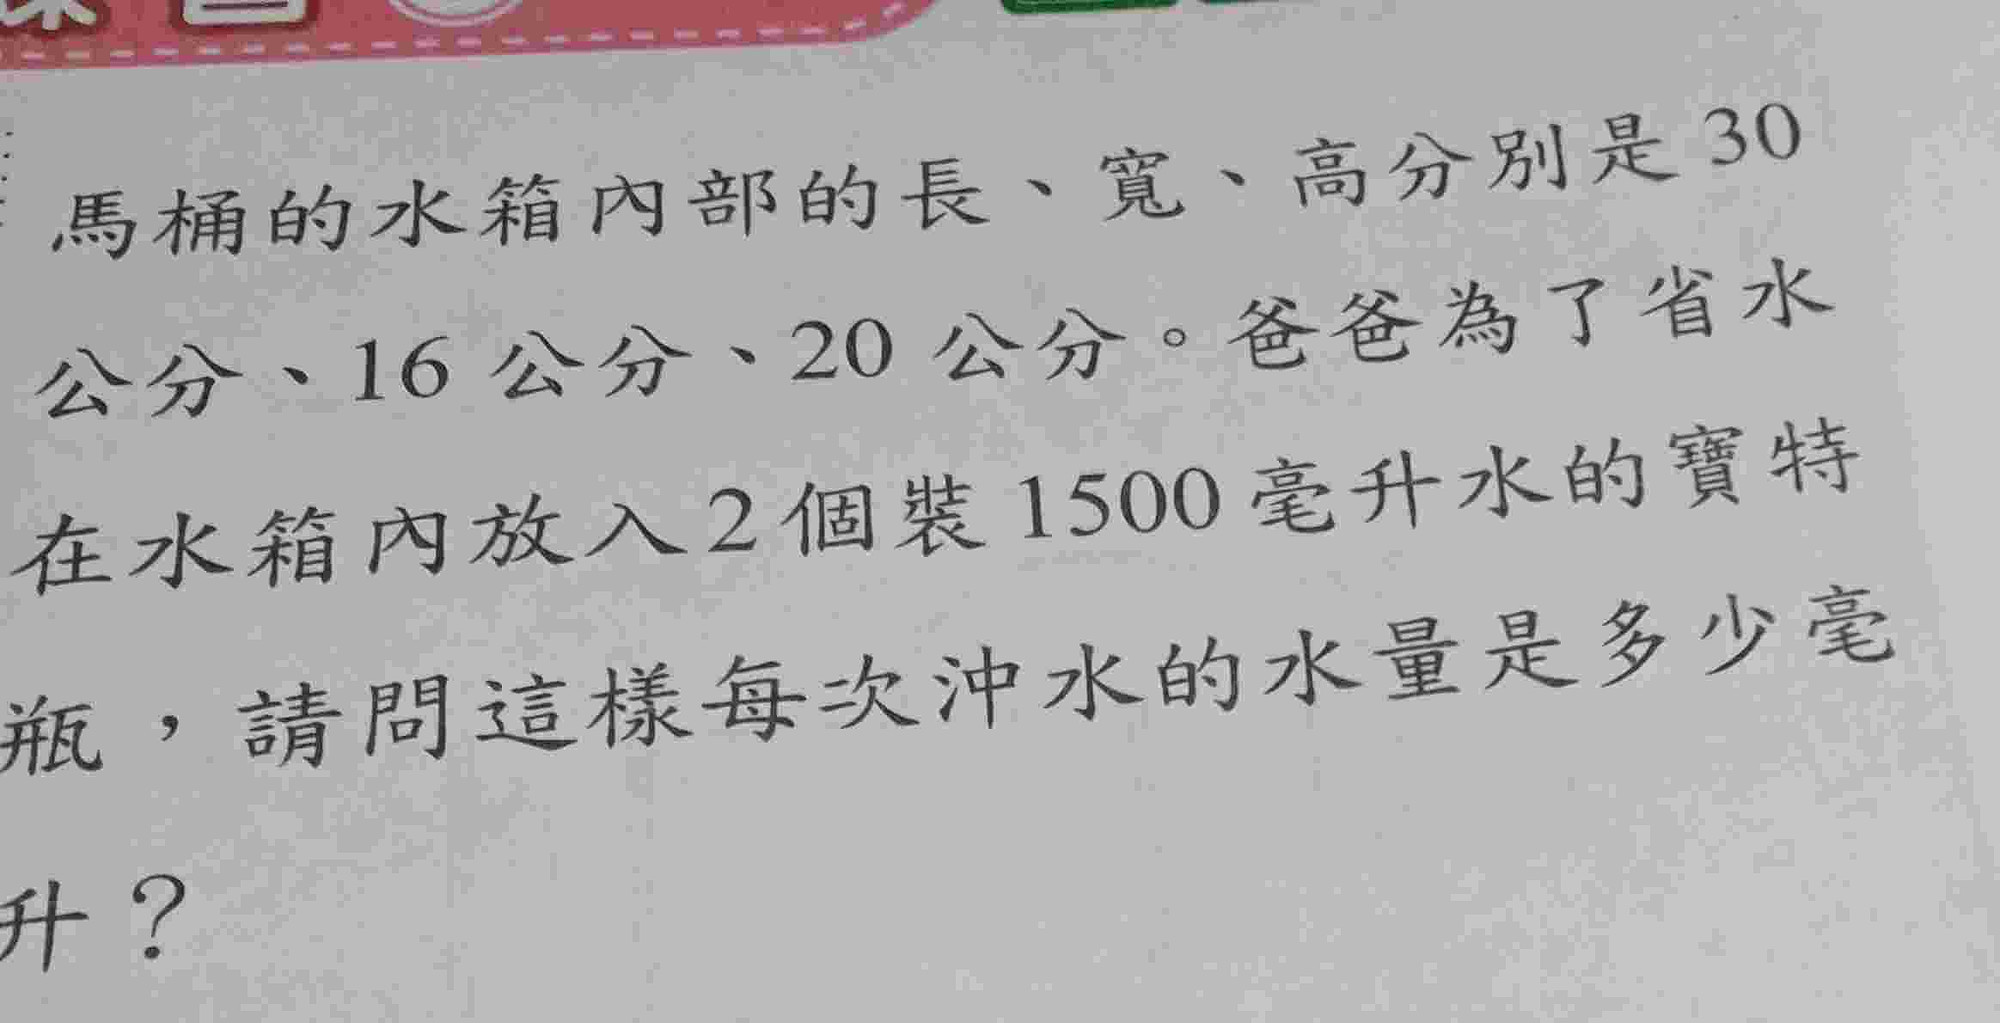 馬桶的水箱內部的長、寬、高分別是 30
公分、16 公分、20 公分。爸爸為了省水
在水箱內放入 2 個裝 1500 毫升水的寶特
瓶，請問這樣每次沖水的水量是多少毫
升？